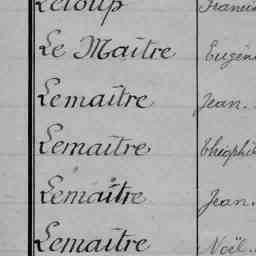 Leloup
Le Maître Eugèn
Lemaître Jean.
Lemaître théophil
Lemaître Jean.
Lemaître Noël.